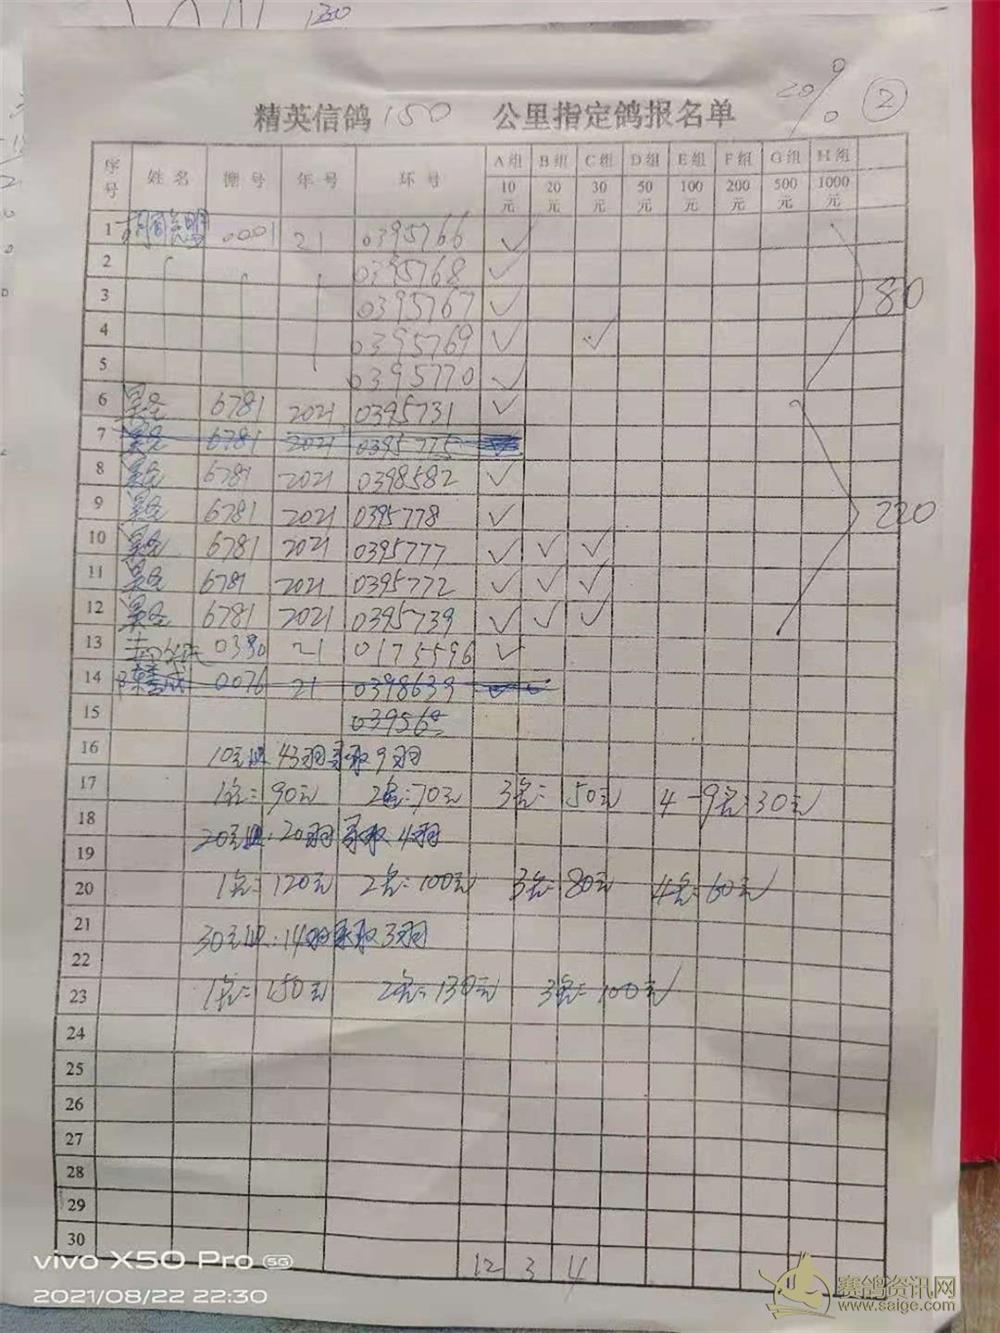 1200
20% ②
精英信鸽150 公里指定鸽报名单
序号 姓名 棚号 年号 环号 A组 B组 C组 D组 E组 F组 G组 H组
10元 20元 30元 50元 100元 200元 500元 1000元
1 0001 21 0395766 ✓
2 0395768 ✓
3 0395767 ✓ 80
4 0395769 ✓ ✓
5 0395770 ✓
6 6781 2021 0395731 ✓
7 6781 2021 0395775
8 6781 2021 0398582 ✓
9 6781 2021 0395778 ✓ 220
10 6781 2021 0395777 ✓ ✓ ✓
11 6781 2021 0395772 ✓ ✓ ✓
12 6781 2021 0395739 ✓ ✓ ✓
13 0380 21 0175596 ✓
14 0076 21 0398639
15 03956
16 10元组 43羽录取9羽
17 1名=90元 2名=70元 3名=50元 4-9名=30元
18 20元组:20羽录取4羽
19
20 1名=120元 2名=100元 3名=80元 4名=60元
21 30元组:14羽录取3羽
22
23 1名=150元 2名=130元 3名=100元
24
25
26
27
28
29
30
12 3 4
vivo X50 Pro 5G
2021/08/22 22:30
赛鸽资讯网
www.saige.com